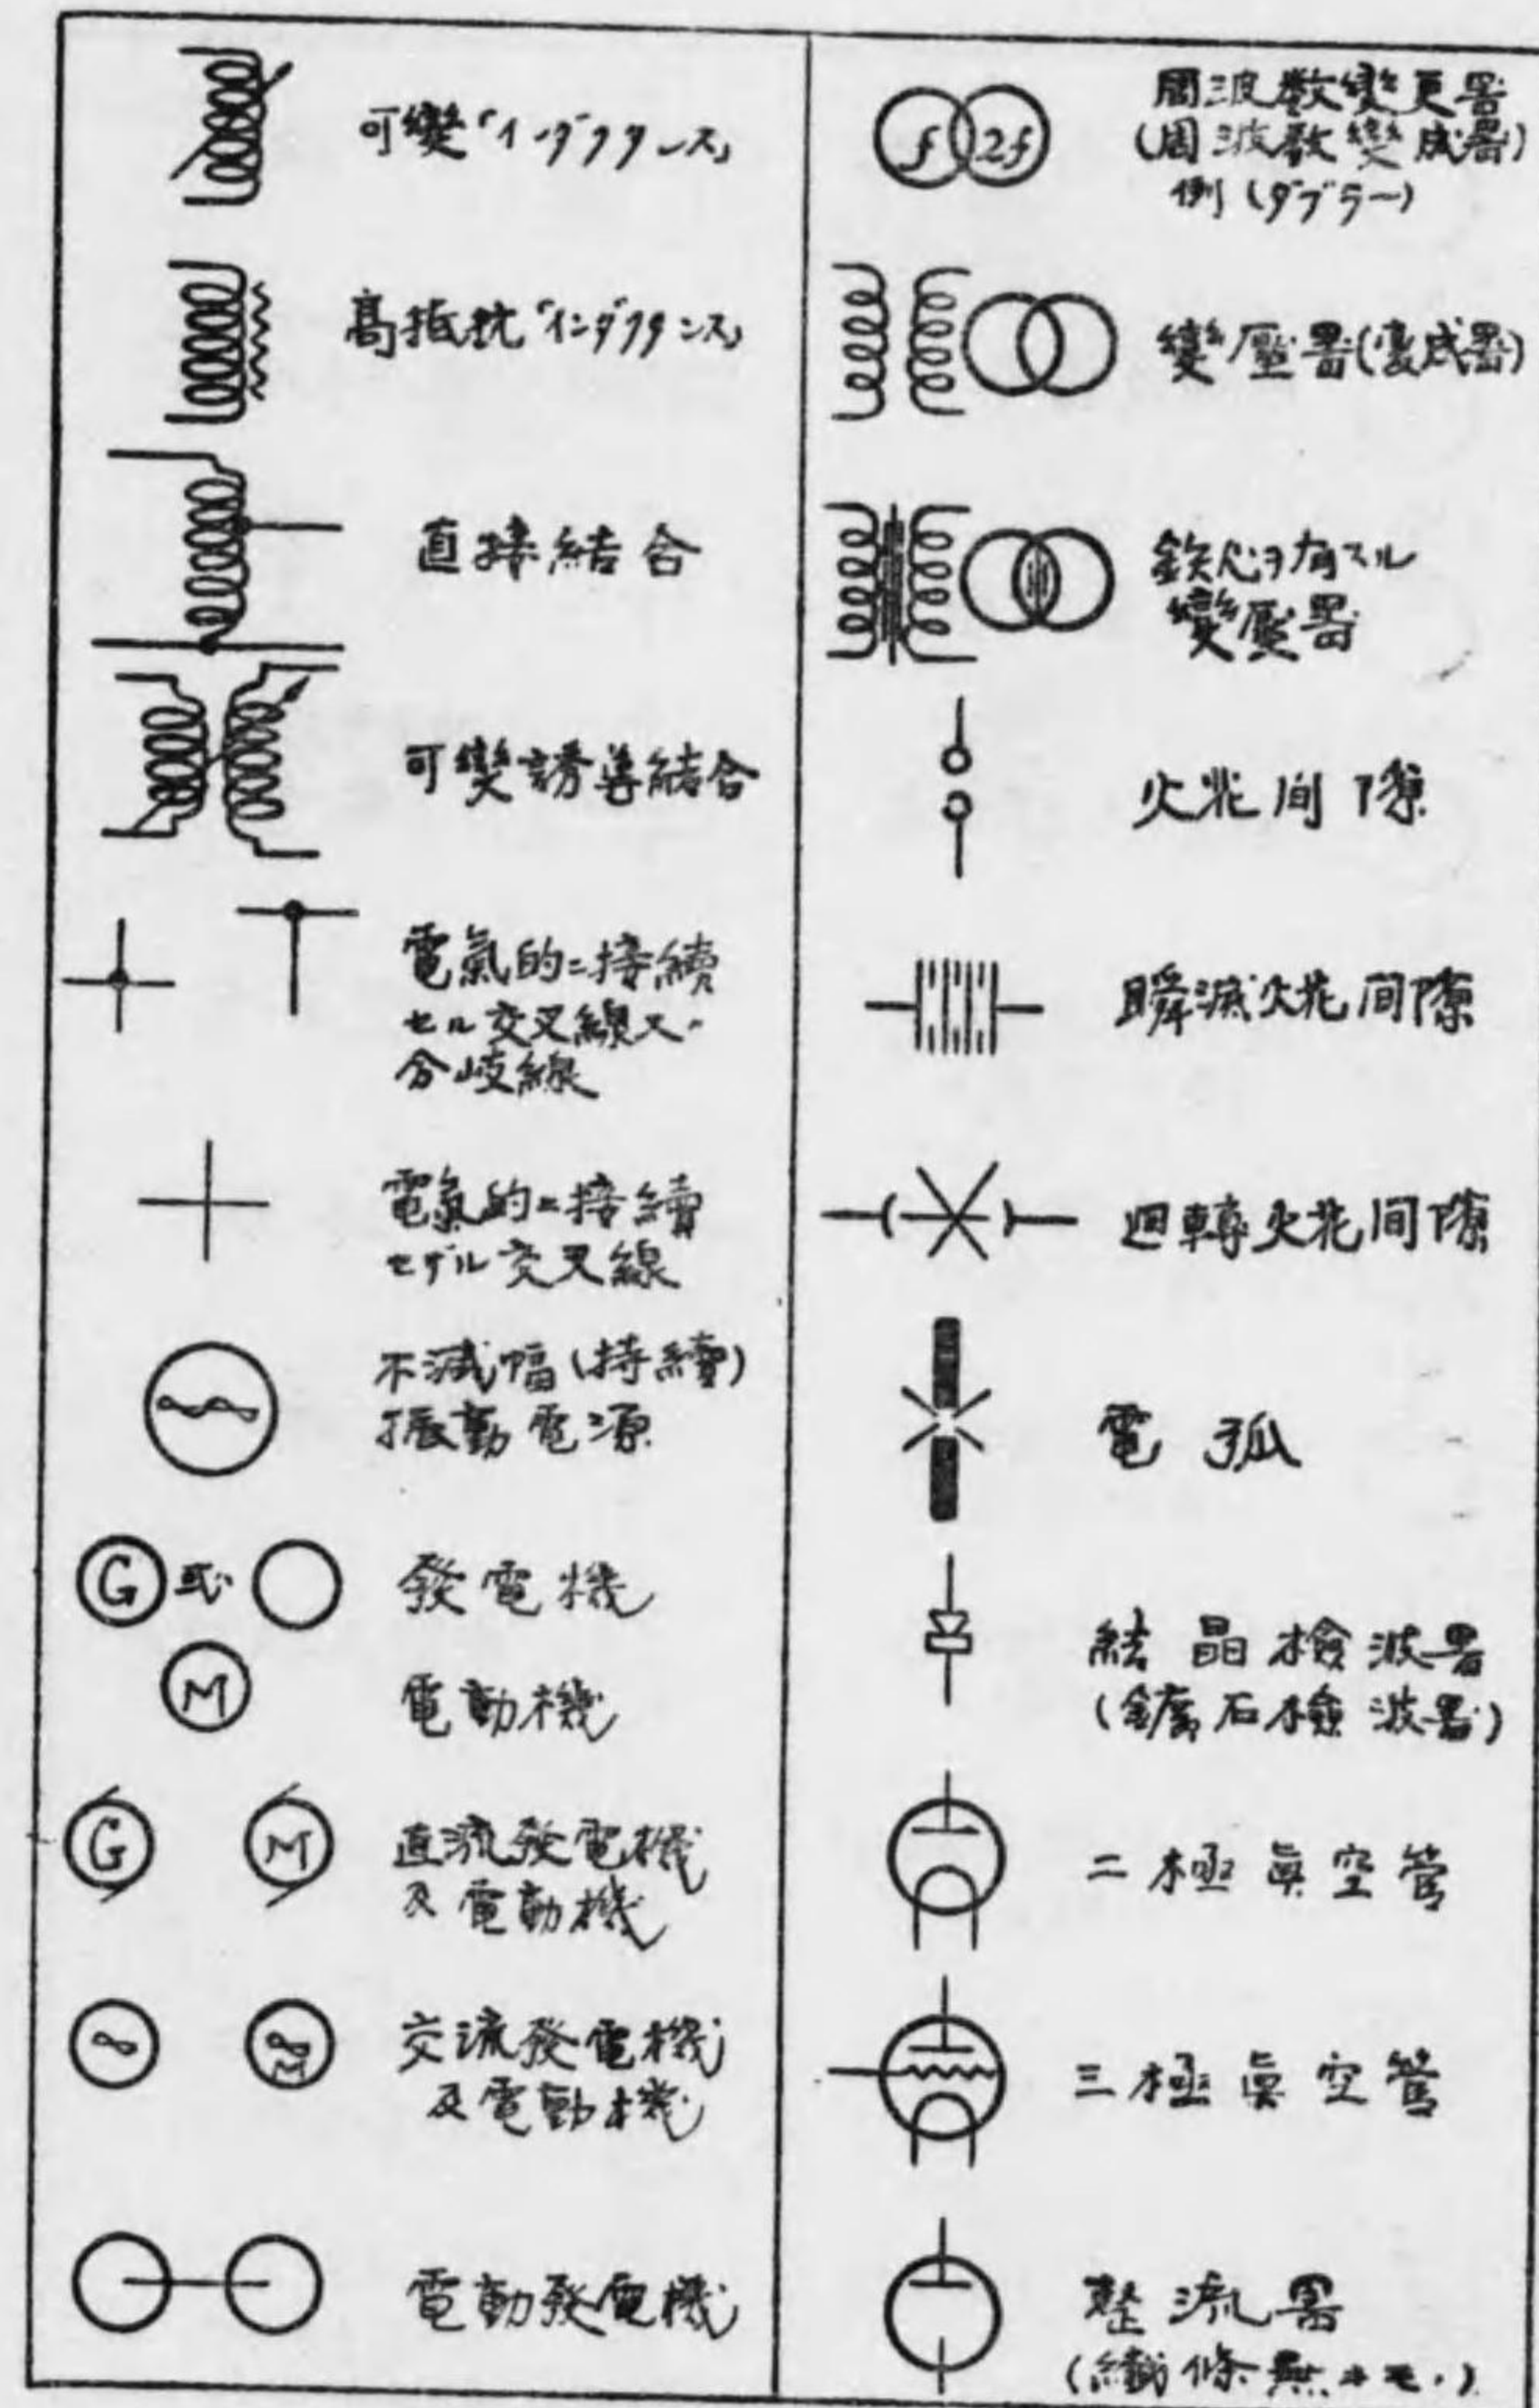 可變「インダクタンス」
高抵抗「インダクタンス」
直接結合
可變誘導結合
電氣的ニ接續
セル交叉線又ハ
分岐線
電氣的ニ接續
セザル交叉線
不減幅(持續)
振動電源
G 或ハ
發電機
M
電動機
G M
直流發電機
及電動機
M
交流發電機
及電動機
電動發電機
f 2f
周波數變更器
(周波數變成器)
例(ダブラー)
變壓器(變成器)
鉄心ヲ有スル
變壓器
火花间隙
瞬滅火花间隙
迴轉火花间隙
電弧
結晶檢波器
(鑛石檢波器)
二極眞空管
三極眞空管
整流器
(纎條無キモノ)